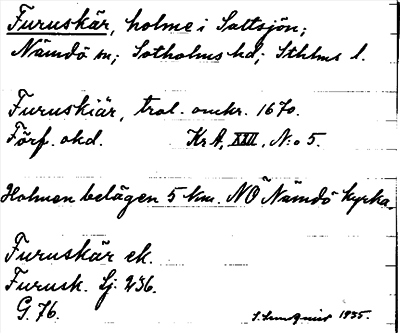 Furuskär, holme i Saltsjön;
Nämdö sn; Sotholms hd; Sthlms l.
Furuskiär, trol. omkr. 1670.
Förf. okd. KrA, XXII, N:o 5.
Holmen belägen 5 km. NO Nämdö kyrka.
Furuskär ek.
Furusk. Sj. 236.
G. 76.
S. Lundqvist 1935.